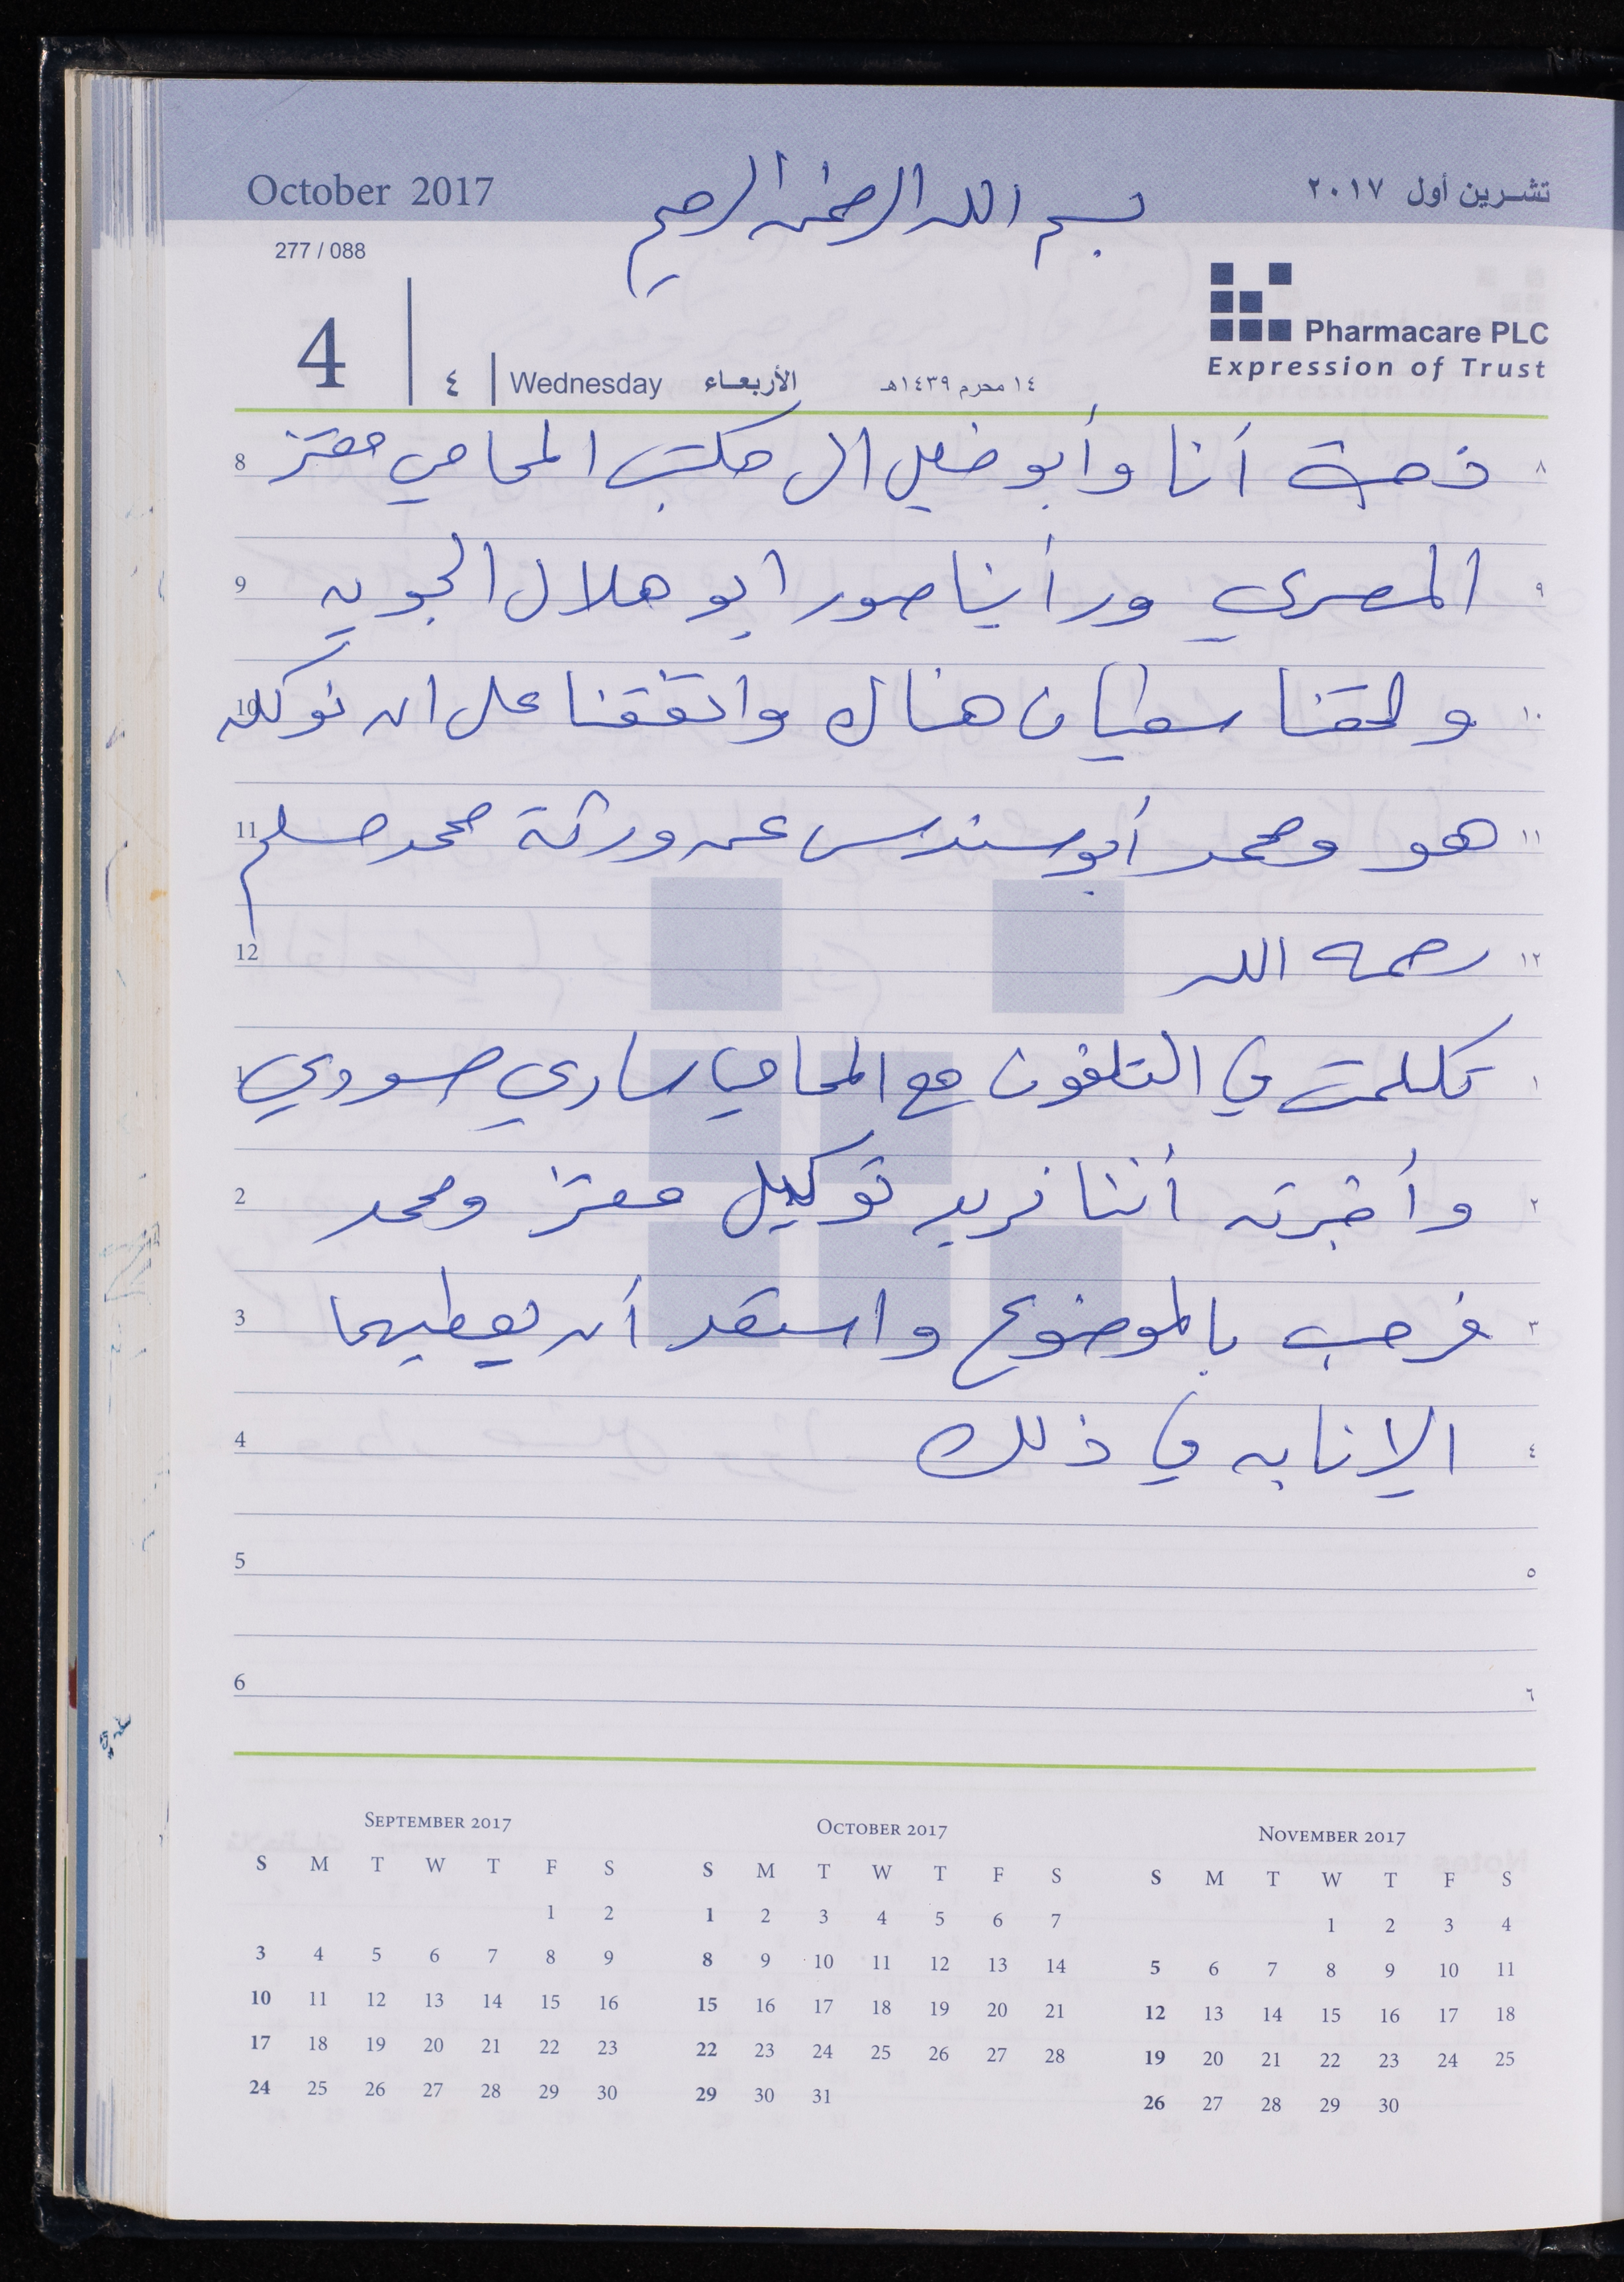 October 2017
بسم الله الرحمن الرحيم
تشـرين أول ٢٠١٧
277 / 088
4
٤
Wednesday
الأربعـاء
١٤ محرم ١٤٣٩هـ
Pharmacare PLC
Expression of Trust
8 ذهبت أنا وأبو فضل الى مكتب المحامي معتز ٨
9 المصري ورأينا صور ابو هلال الجويه ٩
10 ولحقنا سفيان هناك واتفقنا على ان نوكله ١٠
11 هو ومحمد أبو سندس عن ورثة محمد مسلم ١١
12 رحمه الله ١٢
1 تكلمت في التلفون مع المحامي ساري صوودي ١
2 وأخبرته أننا نريد توكيل معتز ومحمد ٢
3 فرحب بالموضوع واستعد أن يعطيهما ٣
4 الإنابه في ذلك ٤
5 ٥
6 ٦
SEPTEMBER 2017
S M T W T F S
1 2
3 4 5 6 7 8 9
10 11 12 13 14 15 16
17 18 19 20 21 22 23
24 25 26 27 28 29 30
OCTOBER 2017
S M T W T F S
1 2 3 4 5 6 7
8 9 10 11 12 13 14
15 16 17 18 19 20 21
22 23 24 25 26 27 28
29 30 31
NOVEMBER 2017
S M T W T F S
1 2 3 4
5 6 7 8 9 10 11
12 13 14 15 16 17 18
19 20 21 22 23 24 25
26 27 28 29 30